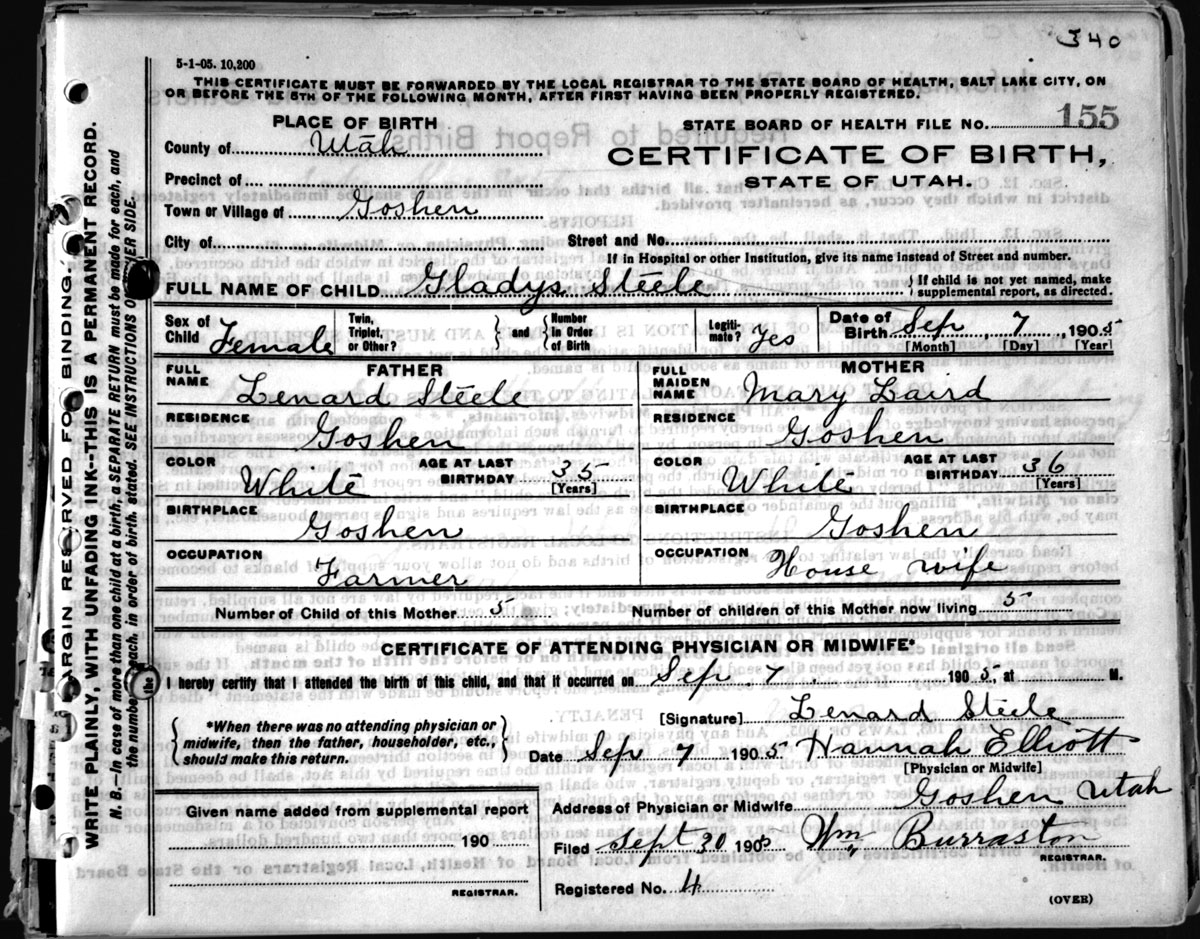 340
5-1-05. 10,200
THIS CERTIFICATE MUST BE FORWARDED BY THE LOCAL REGISTRAR TO THE STATE BOARD OF HEALTH, SALT LAKE CITY, ON
OR BEFORE THE 5TH OF THE FOLLOWING MONTH, AFTER FIRST HAVING BEEN PROPERLY REGISTERED.
PLACE OF BIRTH
STATE BOARD OF HEALTH FILE NO. 155
County of Utah
CERTIFICATE OF BIRTH,
Precinct of
STATE OF UTAH.
Town or Village of Goshen
City of Street and No.
If in Hospital or other Institution, give its name instead of Street and number.
FULL NAME OF CHILD Gladys Steele { If child is not yet named, make
supplemental report, as directed.
Sex of Child Female
Twin, Triplet, or Other? } and { Number in Order of Birth
Legiti- mate? Yes
Date of Birth Sep 7 1905
[Month] [Day] [Year]
FATHER
FULL NAME Lenard Steele
RESIDENCE Goshen
COLOR White AGE AT LAST BIRTHDAY 35 [Years]
BIRTHPLACE Goshen
OCCUPATION Farmer
MOTHER
FULL MAIDEN NAME Mary Laird
RESIDENCE Goshen
COLOR White AGE AT LAST BIRTHDAY 36 [Years]
BIRTHPLACE Goshen
OCCUPATION House wife
Number of Child of this Mother 5 Number of children of this Mother now living 5
CERTIFICATE OF ATTENDING PHYSICIAN OR MIDWIFE*
I hereby certify that I attended the birth of this child, and that it occurred on Sep 7, 1905, at M.
*When there was no attending physician or
midwife, then the father, householder, etc.,
should make this return.
[Signature] Lenard Steele
Date Sep 7 1905 Hannah Elliott
[Physician or Midwife]
Given name added from supplemental report
190
REGISTRAR.
Address of Physician or Midwife Goshen Utah
Filed Sept 30 1905 Wm Burraston
REGISTRAR.
Registered No. 4
(OVER)
MARGIN RESERVED FOR BINDING.
WRITE PLAINLY, WITH UNFADING INK--THIS IS A PERMANENT RECORD.
N. B.—In case of more than one child at a birth, a SEPARATE RETURN must be made for each, and
the number each, in order of birth, stated. SEE INSTRUCTIONS OTHER SIDE.
the